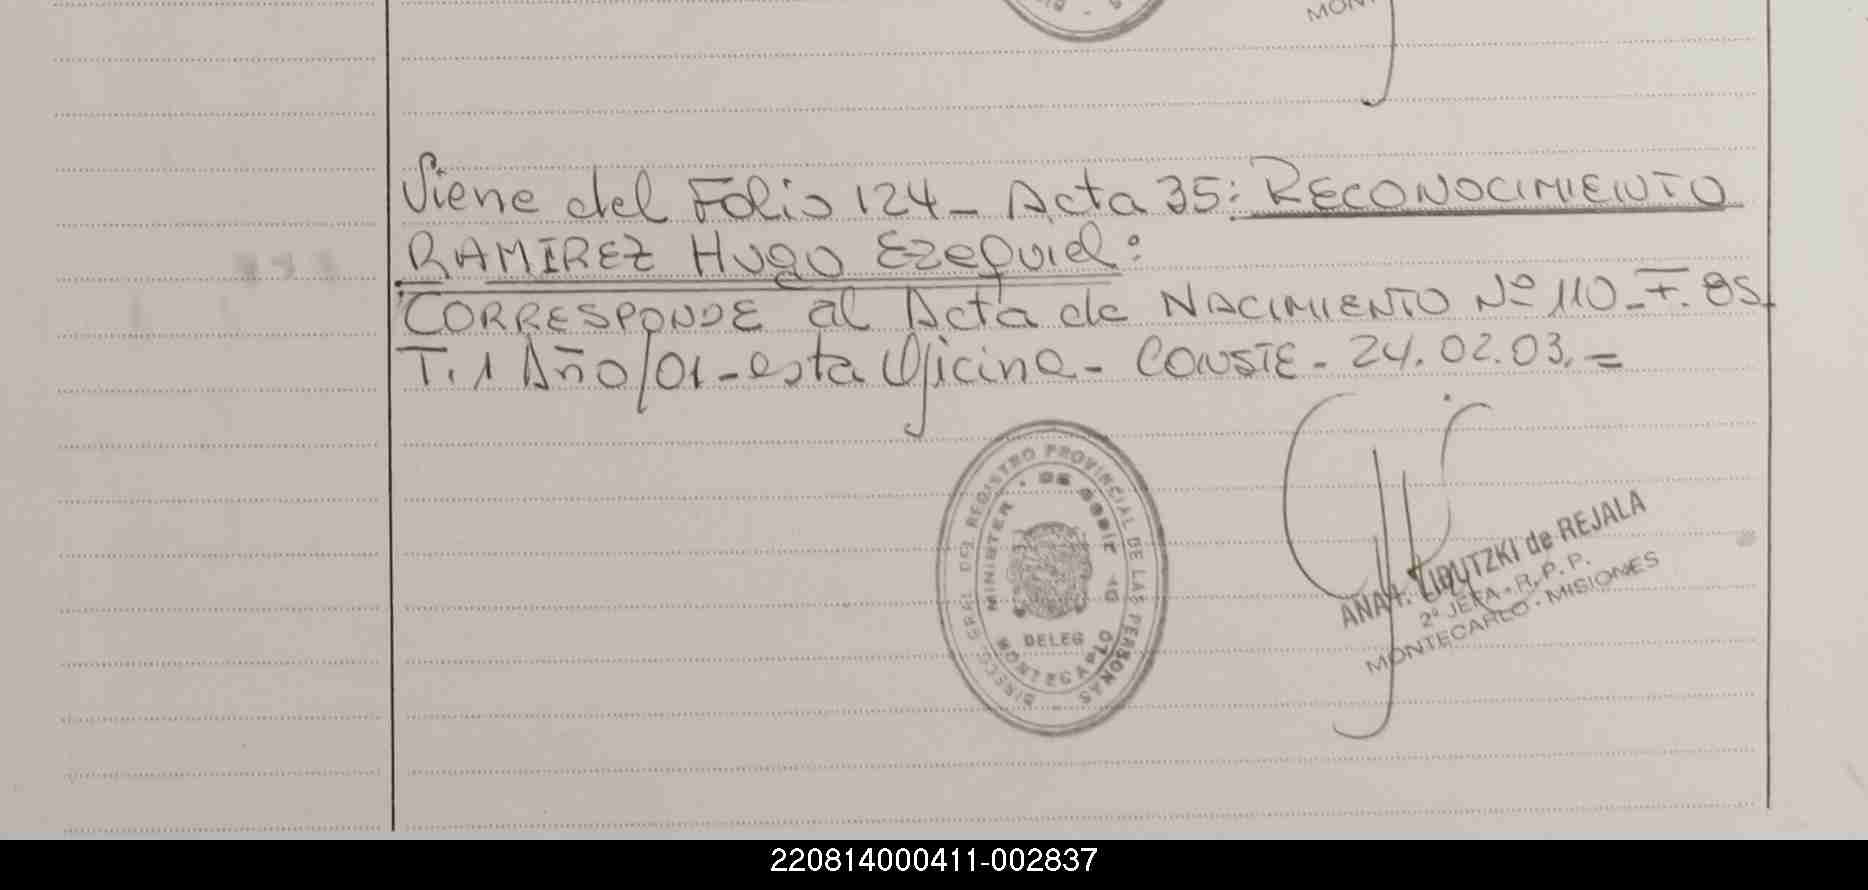 MON
Viene del Folio 124 - Acta 35: RECONOCIMIENTO
RAMIREZ Hugo Ezequiel:
CORRESPONDE al Acta de NACIMIENTO Nº 110 - F. 85
T. 1 Año/01 - esta Oficina - CONSTE - 24.02.03. =
REGISTRO PROVINCIAL DE LAS PERSONAS
MINISTER DE GOBIE
DELEG
ANA LIPUTZKI de REJALA
2ª JEFA - R. P. P.
MONTECARLO - MISIONES
220814000411-002837